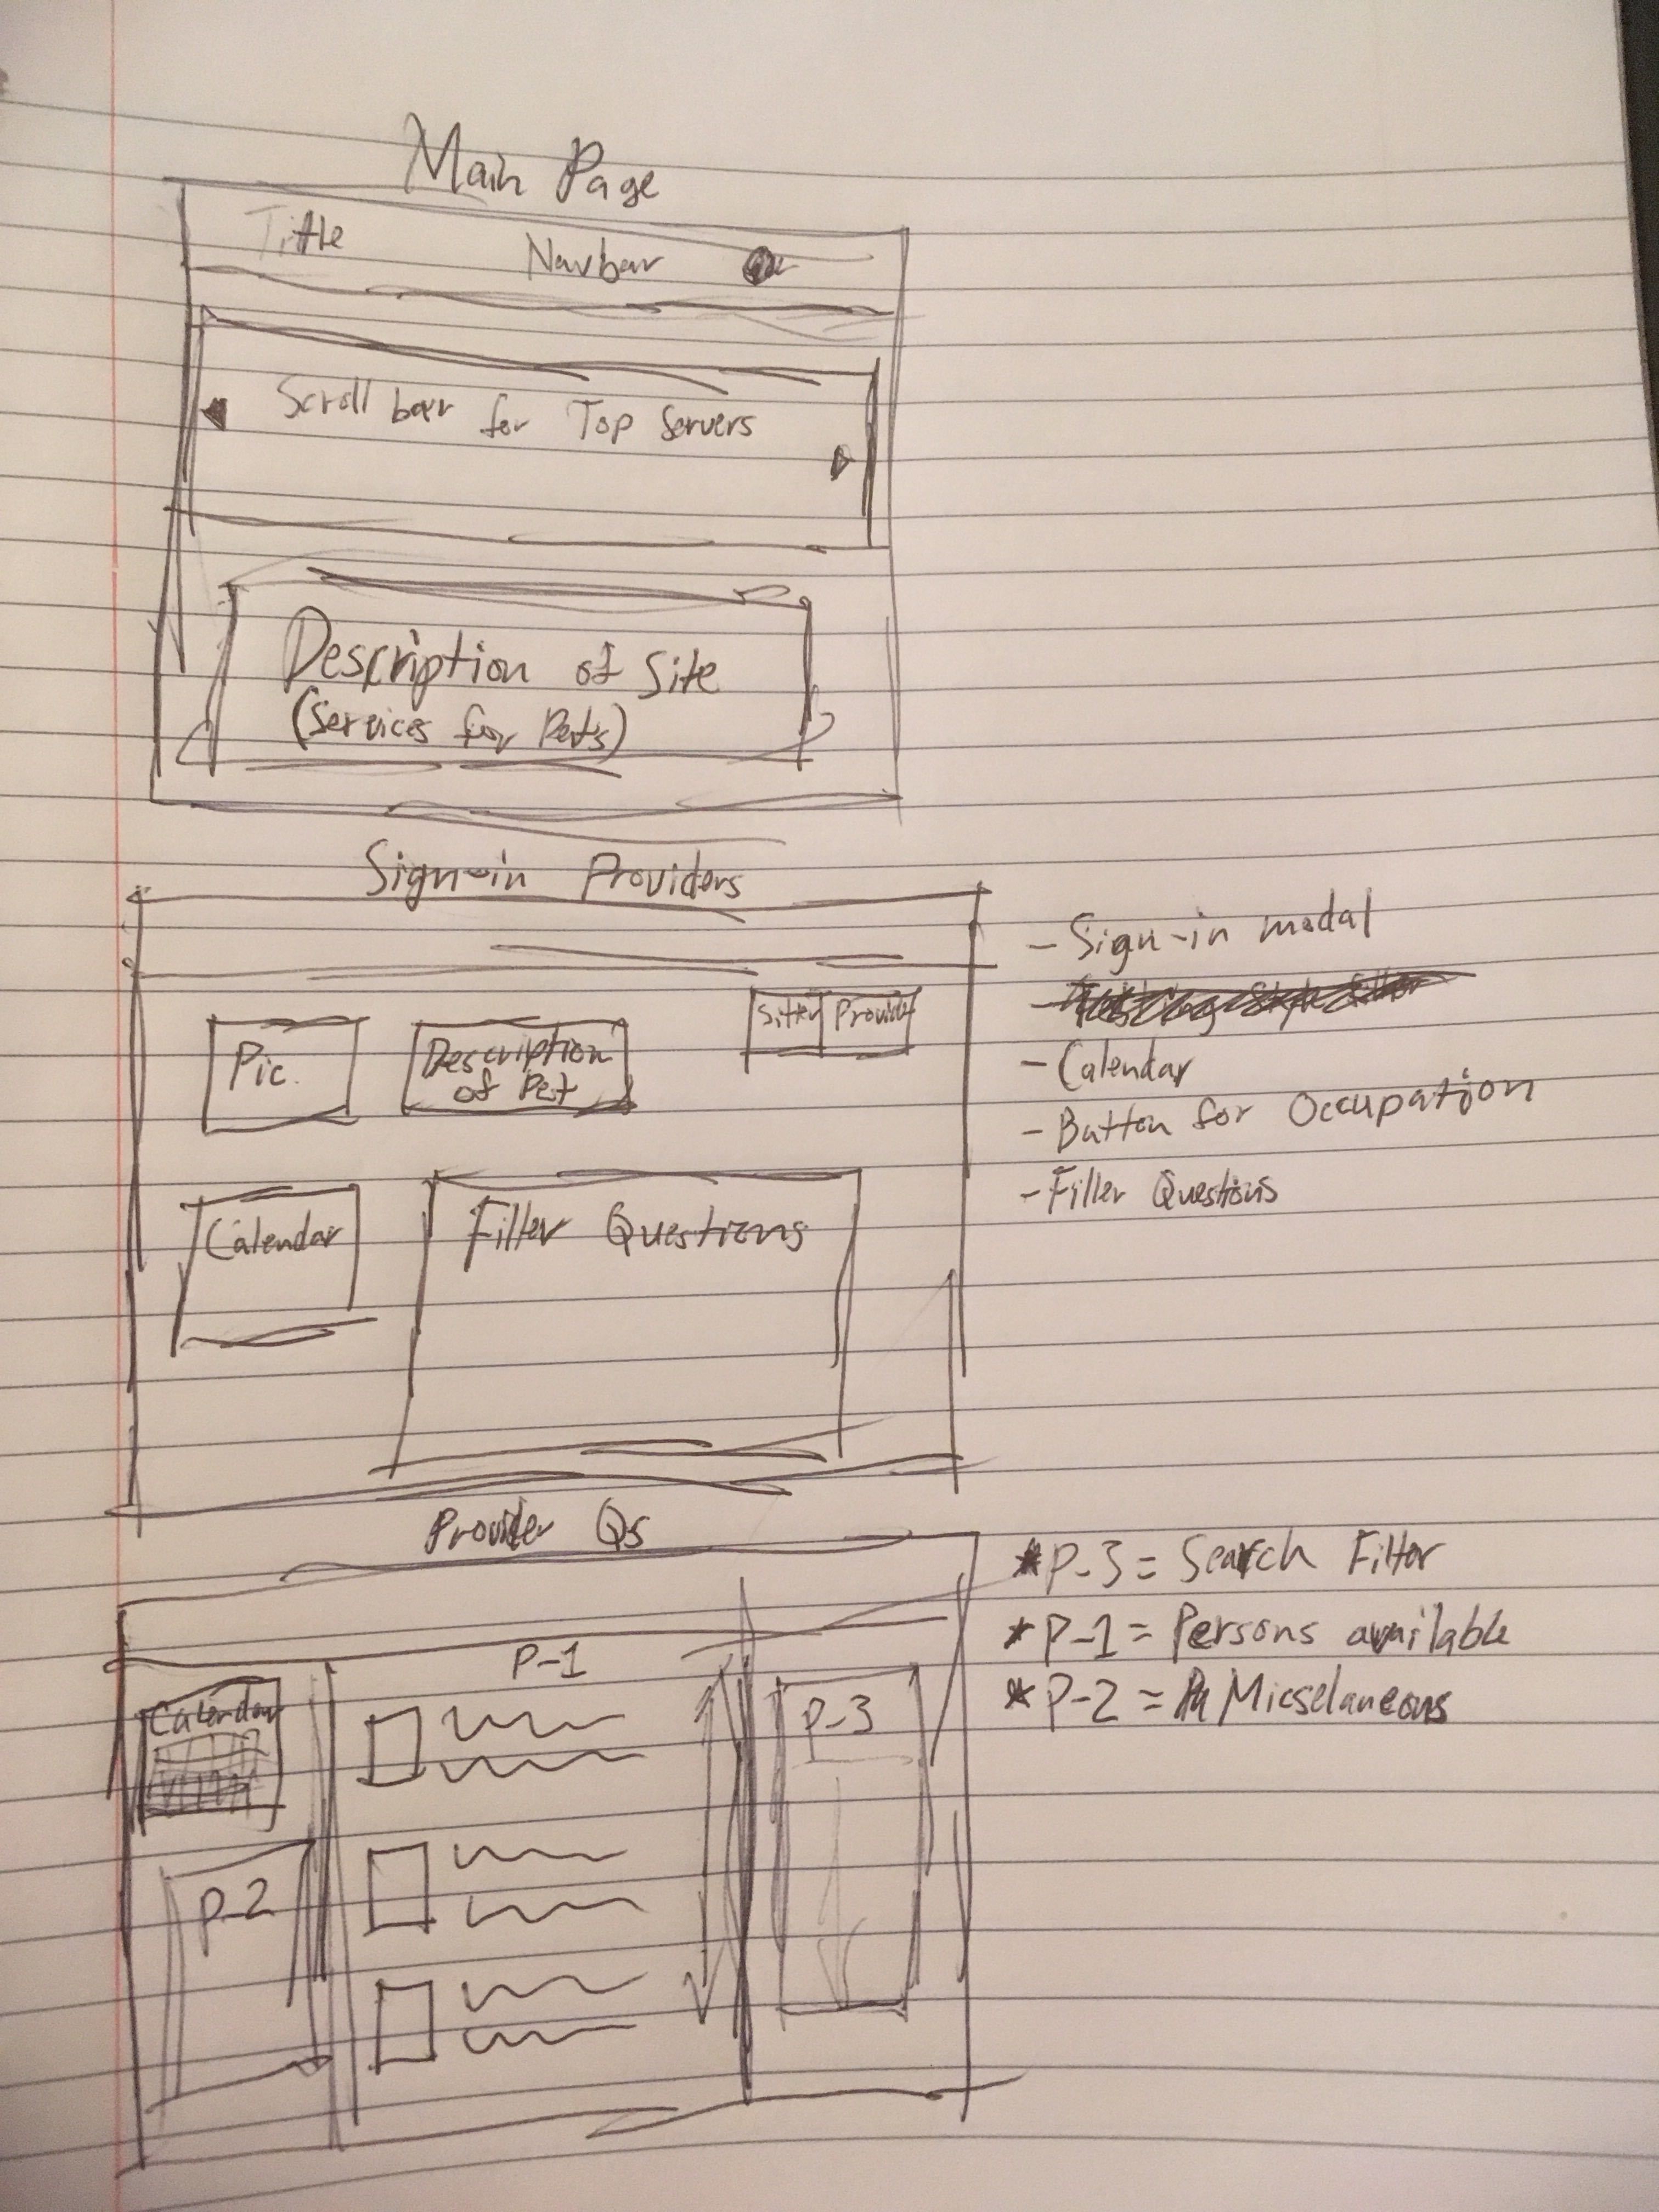 Main Page
Title Navbar
Scroll bar for Top Servers
Description of Site
(Services for Pets)
Sign-in Providers
Pic.
Description
of Pet
Sitter Provider
Calendar
Filler Questions
- Sign-in modal
- Calendar
- Button for Occupation
- Filler Questions
Provider Qs
Calendar
P-1
P-2
P-3
*P-3 = Search Filter
*P-1 = Persons available
*P-2 = Micselaneous